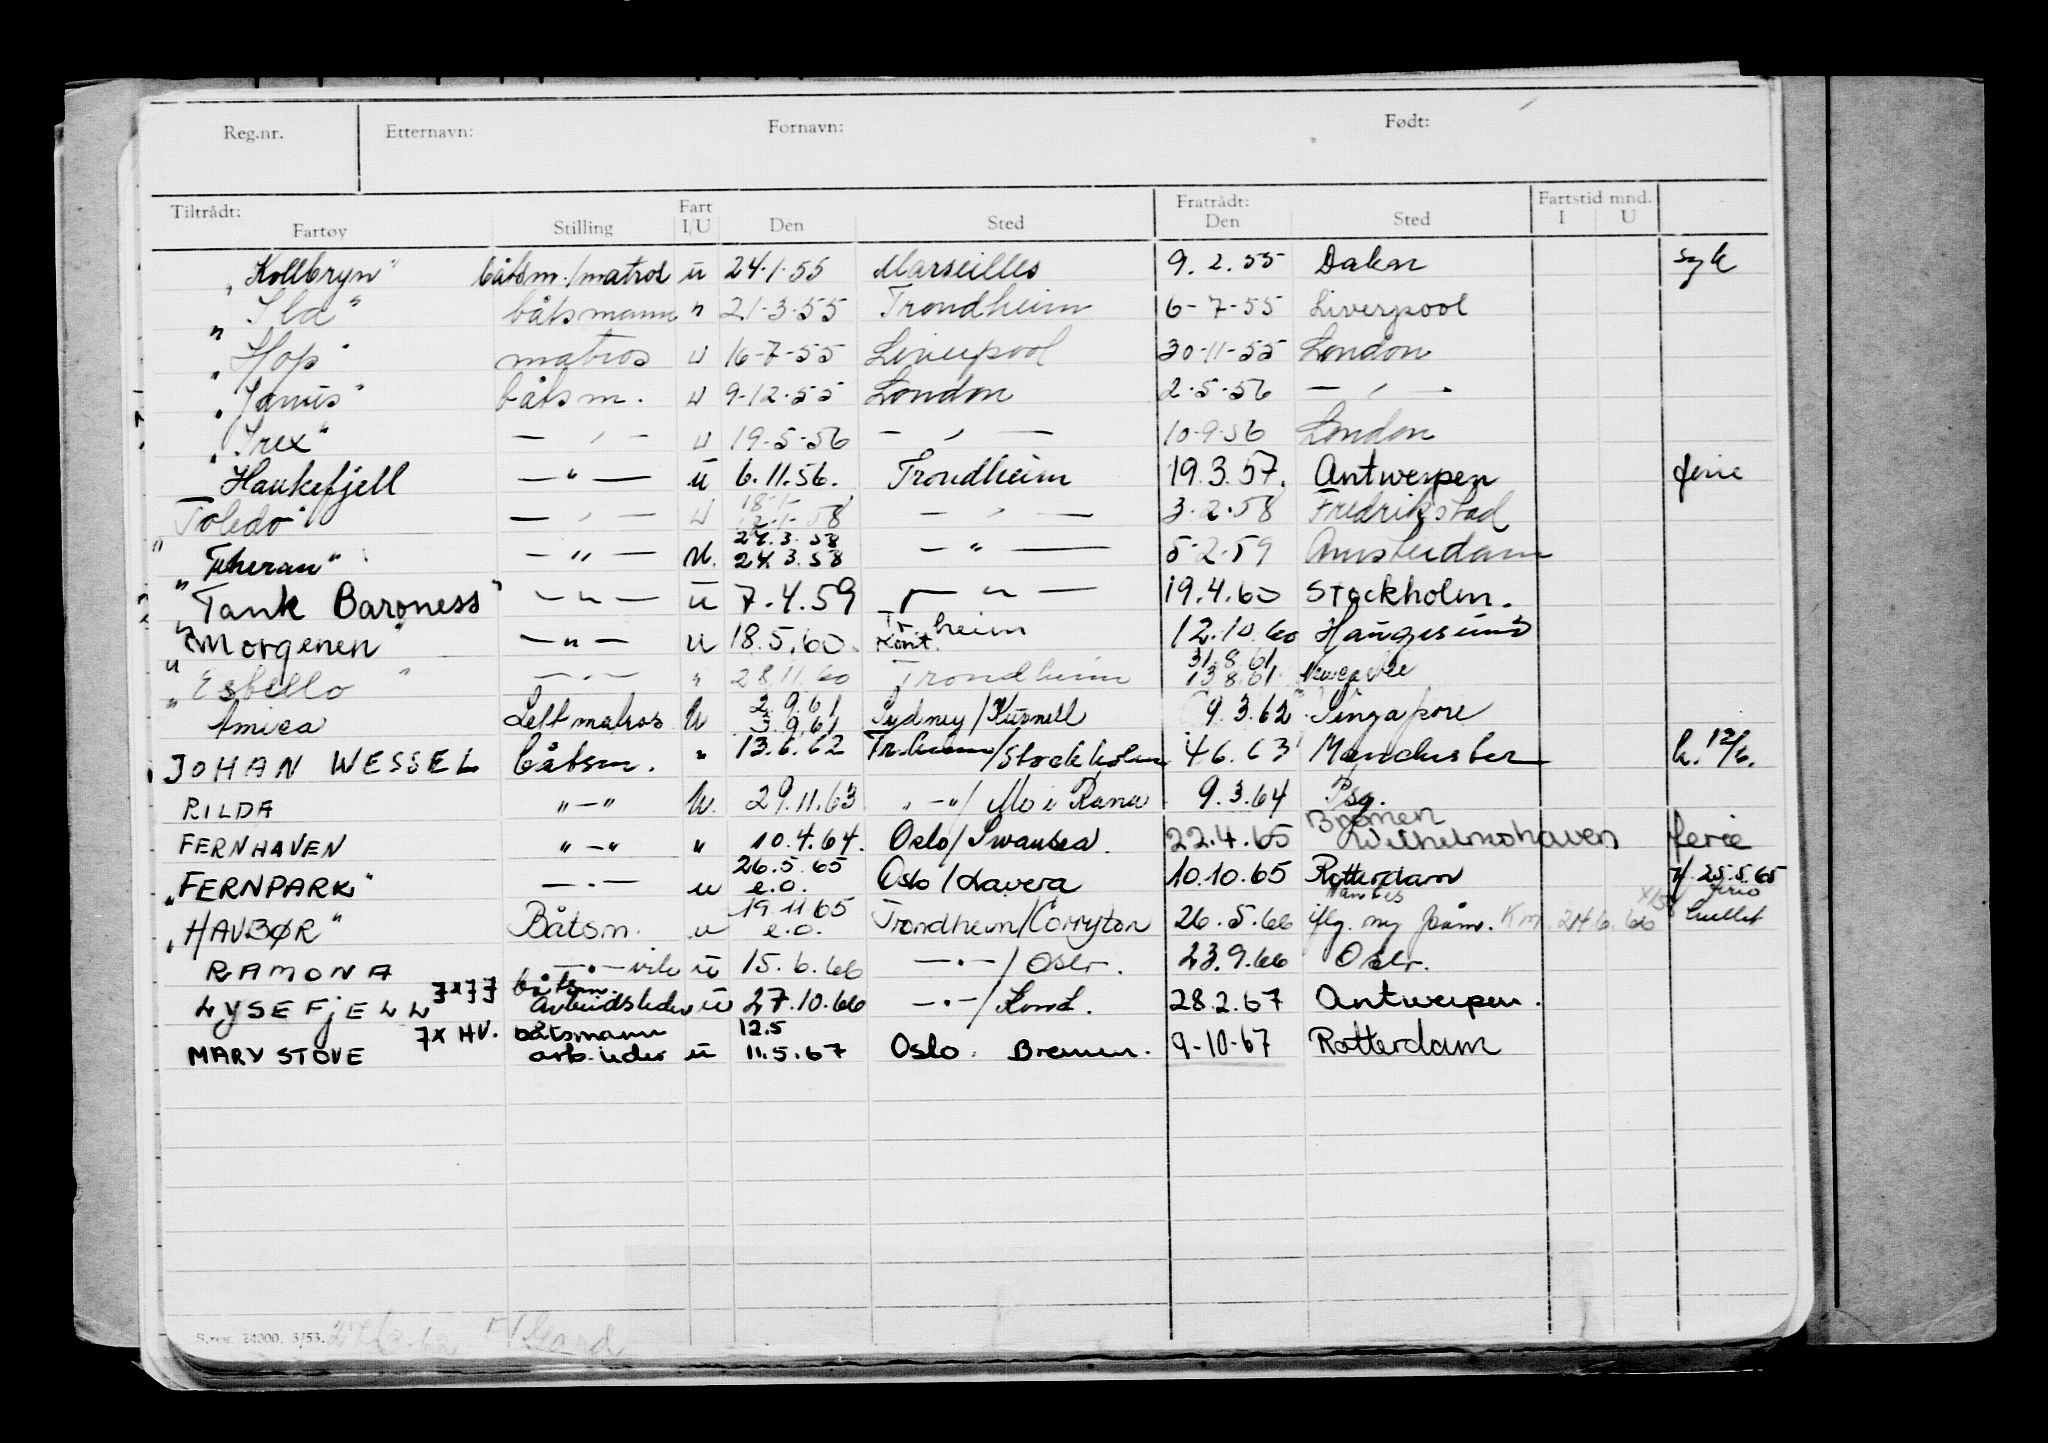 Reg.nr. Etternavn: Fornavn: Født:
Tiltrådt: Fart Fratrådt: Fartstid mnd.
Fartøy Stilling I/U Den Sted Den Sted I U
"Kollbryn" båtsm./matros u 24-1-55 Marseilles 9.2.55 Dakar syk
"Ila" båtsmann " 21-3-55 Trondheim 6-7-55 Liverpool
"Hop" matros u 16-7-55 Liverpool 30-11-55 London
"Janus" båtsm. u 9-12-55 London 2-5-56 — " —
"Irex" — " — u 19-5-56 — " — 10-9-56 London
Haukefjell — " — u 6.11.56. Trondheim 19.3.57. Antwerpen ferie
"Toledo" — " — u 18-1- 12-1-58 — " — 3-2-58 Fredrikstad
"Teheran" — " — u. 24.3.58 24.3.58 — " — 5-2-59 Amsterdam
"Tank Baroness" — " — u 7.4.59 — " — 19.4.60 Stockholm.
"Morgenen" — " — u 18.5.60 Tr.heim Kont. 12.10.60 Haugesund
"Esbello" — " — " 28.11.60 Trondheim 31.8.61 13.8.61
Amica Lettmatros u 2.9.61 3.9.61 Sydney/Kurnell 9.3.62 Singapore
JOHAN WESSEL båtsm. " 13.6.62 Tr.heim/Stockholm 4 6.63 Manchester h. 12/6.
RILDA " — " u. 29.11.63 " — "/Mo i Rana 9.3.64 Psg.
FERNHAVEN " — " " 10.4.64. Oslo/Swansea. 22.4.65 Bremen Wilhelmshaven ferie
"FERNPARK" — " — u 26.5.65 e.o. Oslo/Lavera 10.10.65 Rotterdam 25.5.65 ferie
"HAVBØR" Båtsm. u 19 11 65 e.o. Trondheim/Corryton 26.5.66 Nantes iflg. ny påm. Km 24 6.66
RAMONA — " — u 15.6.66 — " —/Oslo. 23.9.66 Oslo.
LYSEFJELL båtsm. Arbeidsleder u 27.10.66 — " —/Lond. 28.2.67 Antwerpen.
MARY STOVE 7x HV. båtsmann arb. leder u 12.5 11.5.67 Oslo. Bremen. 9-10-67 Rotterdam
S.reg. 24000. 3/53.